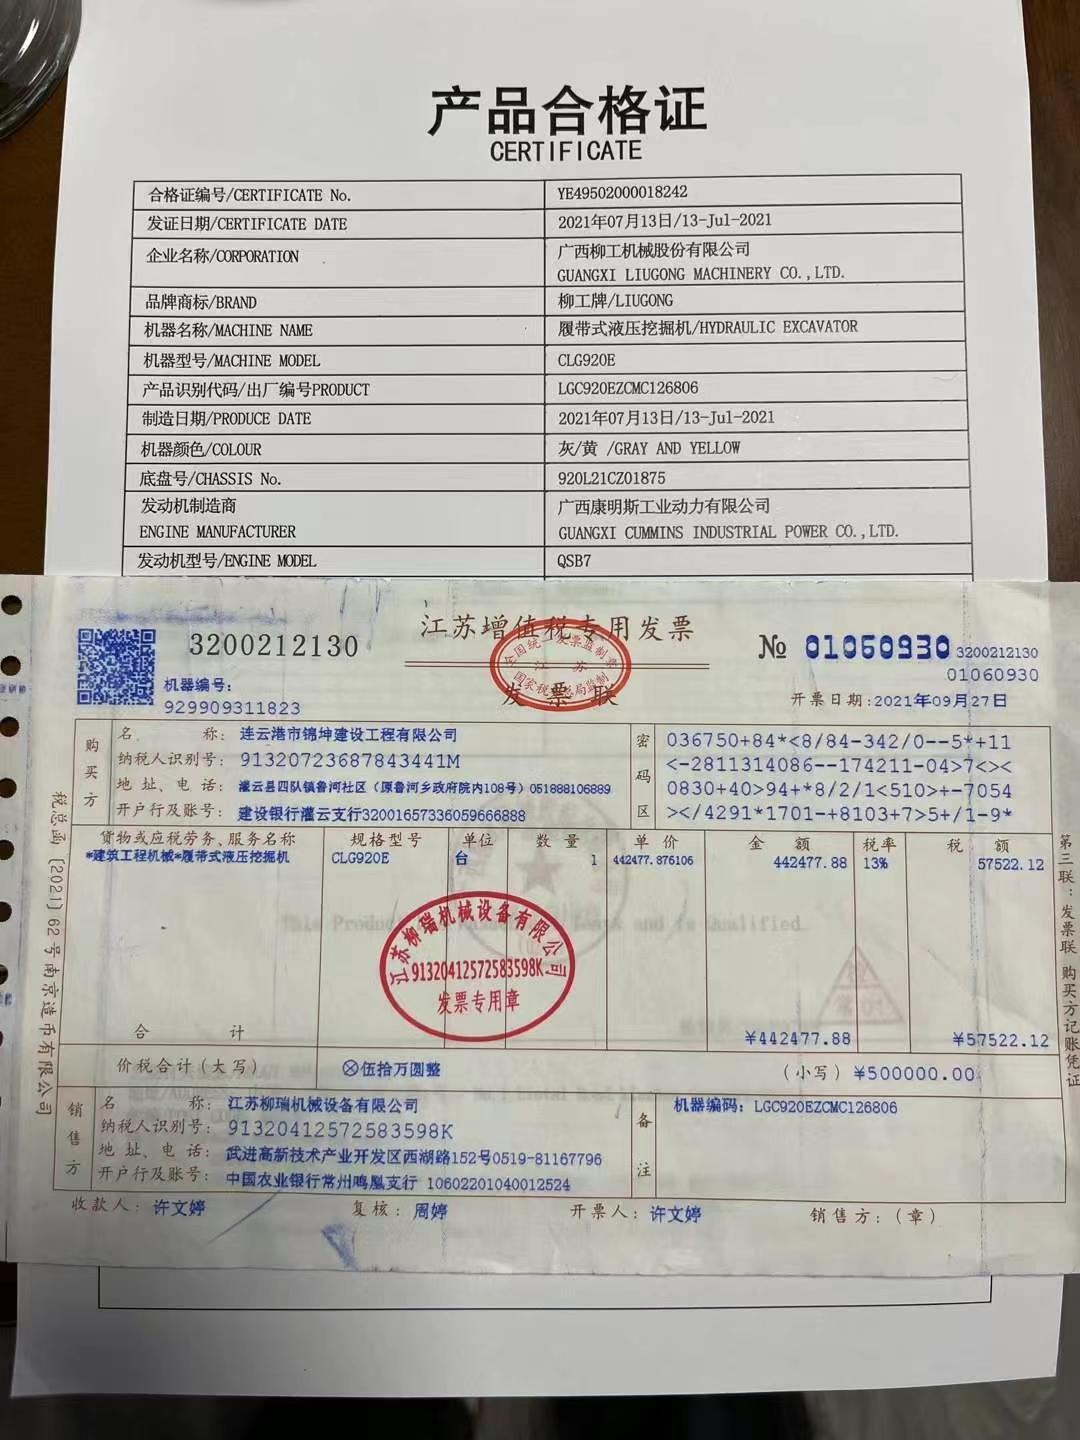 产品合格证
CERTIFICATE
合格证编号/CERTIFICATE No. YE49502000018242
发证日期/CERTIFICATE DATE 2021年07月13日/13-Jul-2021
企业名称/CORPORATION 广西柳工机械股份有限公司
GUANGXI LIUGONG MACHINERY CO.,LTD.
品牌商标/BRAND 柳工牌/LIUGONG
机器名称/MACHINE NAME 履带式液压挖掘机/HYDRAULIC EXCAVATOR
机器型号/MACHINE MODEL CLG920E
产品识别代码/出厂编号PRODUCT LGC920EZCMC126806
制造日期/PRODUCE DATE 2021年07月13日/13-Jul-2021
机器颜色/COLOUR 灰/黄 /GRAY AND YELLOW
底盘号/CHASSIS No. 920L21CZ01875
发动机制造商 广西康明斯工业动力有限公司
ENGINE MANUFACTURER GUANGXI CUMMINS INDUSTRIAL POWER CO.,LTD.
发动机型号/ENGINE MODEL QSB7
江苏增值税专用发票
3200212130
№ 01060930 3200212130
01060930
全国统一发票监制章
江苏
国家税务总局监制
发票联
机器编号:
929909311823
开票日期:2021年09月27日
购买方
名称: 连云港市锦坤建设工程有限公司
纳税人识别号: 91320723687843441M
地址、电话: 灌云县四队镇鲁河社区(原鲁河乡政府院内108号)051888106889
开户行及账号: 建设银行灌云支行32001657336059666888
密码区
036750+84*<8/84-342/0--5*+11
<-2811314086--174211-04>7<><
0830+40>94+*8/2/1<510>+-7054
></4291*1701-+8103+7>5+/1-9*
货物或应税劳务、服务名称 规格型号 单位 数量 单价 金额 税率 税额
*建筑工程机械*履带式液压挖掘机 CLG920E 台 1 442477.876106 442477.88 13% 57522.12
This Product and is Qualified
江苏柳瑞机械设备有限公司
91320412572583598K
发票专用章
合计 ¥442477.88 ¥57522.12
价税合计(大写) ⊗伍拾万圆整 (小写) ¥500000.00
销售方
名称: 江苏柳瑞机械设备有限公司
纳税人识别号: 91320412572583598K
地址、电话: 武进高新技术产业开发区西湖路152号0519-81167796
开户行及账号: 中国农业银行常州鸣凰支行 10602201040012524
备注
机器编码: LGC920EZCMC126806
收款人: 许文婷 复核: 周婷 开票人: 许文婷 销售方:(章)
税总函[2021]62号南京造币有限公司
第三联:发票联 购买方记账凭证